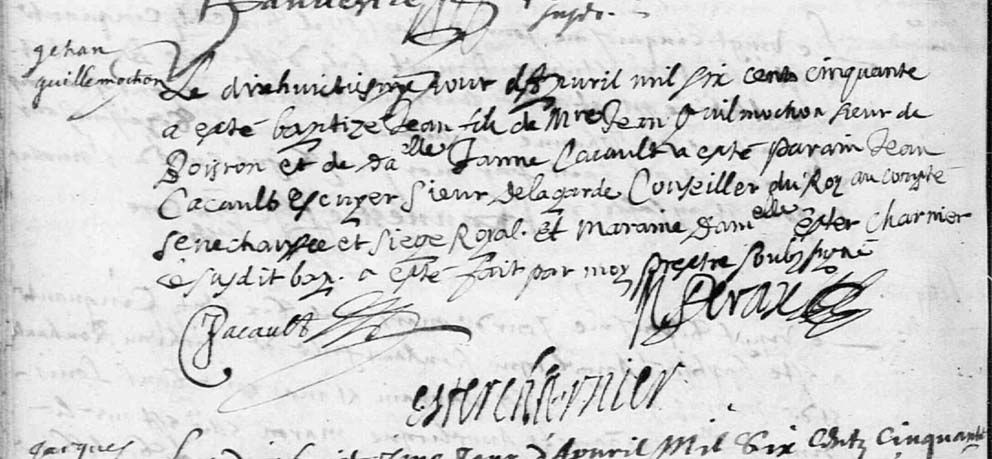 susd.
gehan
guillemochon
Le dixhuitiesme Jour d'Apvril mil six cents cinquante
a esté baptizé Jean fils de Mre Jean Guilmochon sieur de
Boisron et de dalle Janne Cacault a esté parain Jean
Cacault Escuyer sieur delagarde Conseiller du Roy au compte
Senechaussee et siege Royal. Et maraine Damelle Ester Charnier
Le susdit bap. a esté fait par moy prestre soubzsigné
JCacault Derax
ester charnier
Jacques
Jour d'Apvril Mil Six Centz Cinquante